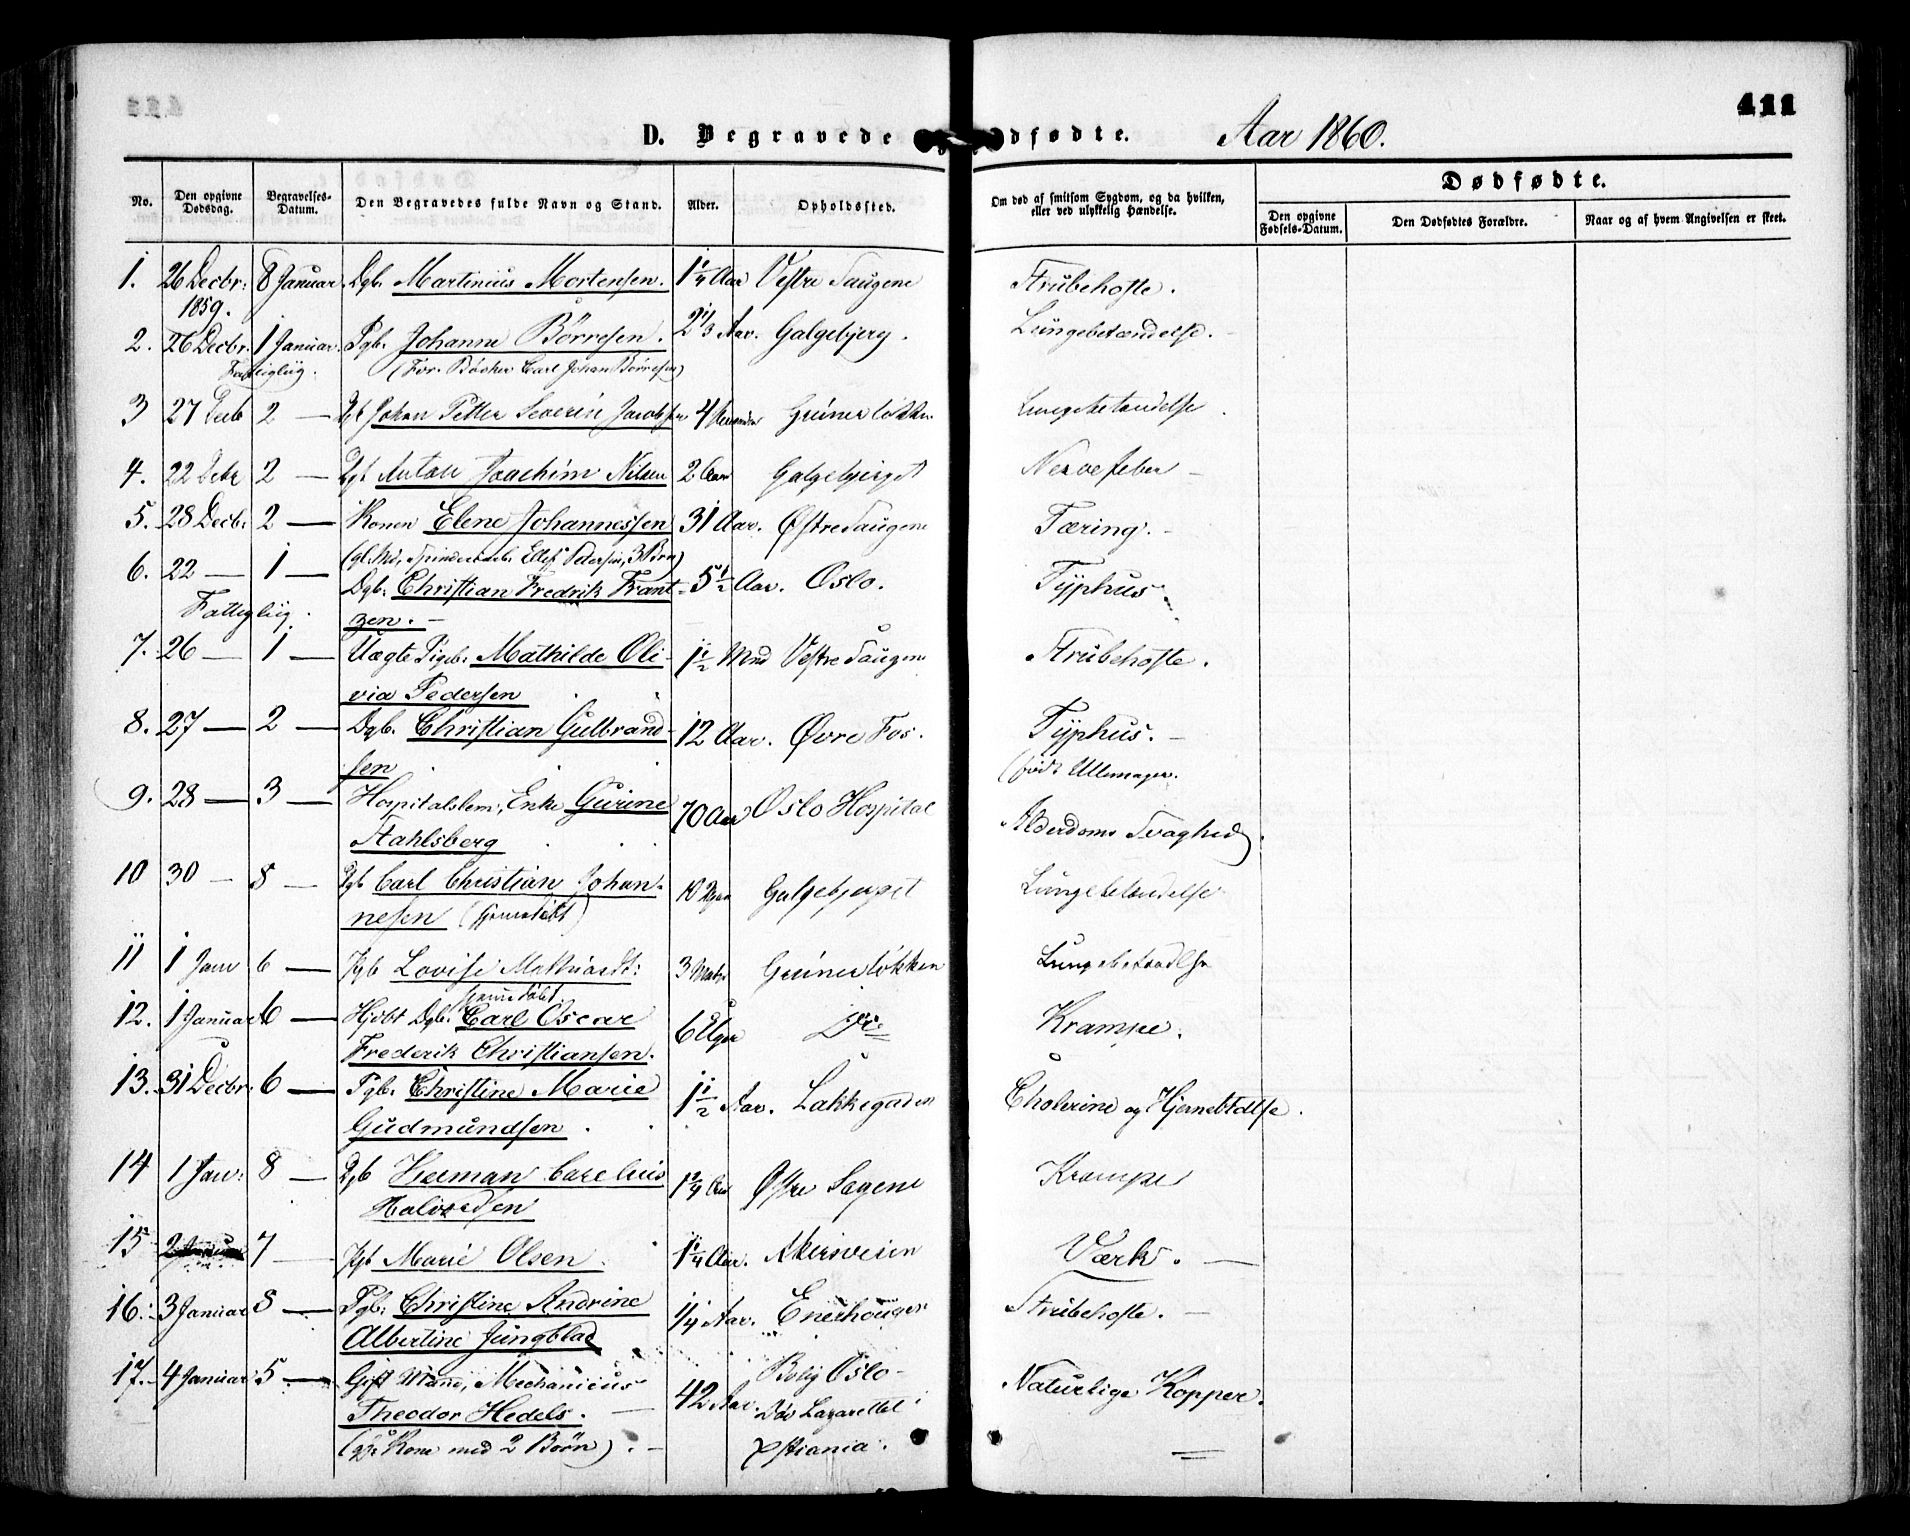 411
D. Begravede og Dødfødte. Aar 1860.
No. Den opgivne Dødsdag. Begravelses-Datum. Den Begravedes fulde Navn og Stand. Alder. Opholdssted. Om død af smitsom Sygdom, og da hvilken, eller ved ulykkelig Hændelse. Dødfødte.
Den opgivne Fødsels-Datum. Den Dødfødtes Forældre. Naar og af hvem Angivelsen er skeet.
1. 26 Decbr: 8 Januar Dgb. Martinius Mortensen. 1 1/4 Aar Vestre Saugene Strubehoste.
1859.
2. 26 Decbr. 1 Januar. Pgb. Johanne Børresen. 2 1/3 Aar. Galgebjerg. Lungebetændelse.
Fattigliig. (For. Bødker Carl Johan Børresen)
3 27 Decb 2 — Dgb Johan Petter Severin Jacobsen 4 Maaneder Grünerløkken Lungebetændelse
4. 22 Decbr 2 — Dgb Anton Joachim Nilsen 2 Aar Galgebjerget Nervefeber
5. 28 Decb: 2 — Konen Elene Johannessen 31 Aar. Østre Saugene Tæring.
6. 22 — 1 — (gl. Md, Spinderarb. Ellef Petersen, 3 Børn)
Dgb. Christian Fredrik Frant- 5 1/2 Aar. Oslo. Typhus.
Fattigliig. zen.
7. 26 — 1 — Uægte Pigeb. Mathilde Oli- 1 1/2 Mnd Vestre Saugene Strubehoste.
via Pedersen
8. 27 — 2 — Dgb. Christian Gulbrand- 12 Aar. Øvre Fos. Typhus.
sen (født Ullensager.
9. 28 — 3 — Hospitalslem, Enke Gurine 70 Aar Oslo Hospital Alderdoms Svaghed.
Stahlsberg
10 30 — 8 — Dgb Carl Christian Johan- 10 Uger Galgebjerget Lungebetændelse
nesen (hjemmedøbt)
11 1 Janu 6 — Pgb Lovise Mathiardt: 3 Maaneder Grünerløkken Lungebetændelse
hjemmedøbt.
12. 1 Januar 6 — Hjdbt Dgb. Carl Oscar 6 Uger Do Krampe.
Frederik Christiansen.
13. 31 Decbr. 6 — Pgb. Christine Marie 1 1/2 Aar. Lakkegaden Cholerine og Hjernebtdlse.
Gudmundsen
14 1 Jan: 8 — Dgb Herman Carelius 1 3/4 Aar Østre Sagene Krampe
Halvorsen
15 2 Januar 7 — Pgb Marie Olsen 1 1/4 Aar. Akersveien Værk.
16. 3 Januar 8 — Pgb. Christine Andrine 1/4 Aar. Enerhougen Strubehoste.
Albertine Jungblad
17. 4 Januar 5 — Gift Mand, Mechanicus 42 Aar. Bolig Oslo- Naturlige Kopper.
Theodor Hedels. Død Lazarettet i
(gp. Kone med 2 Børn). Xstiania.